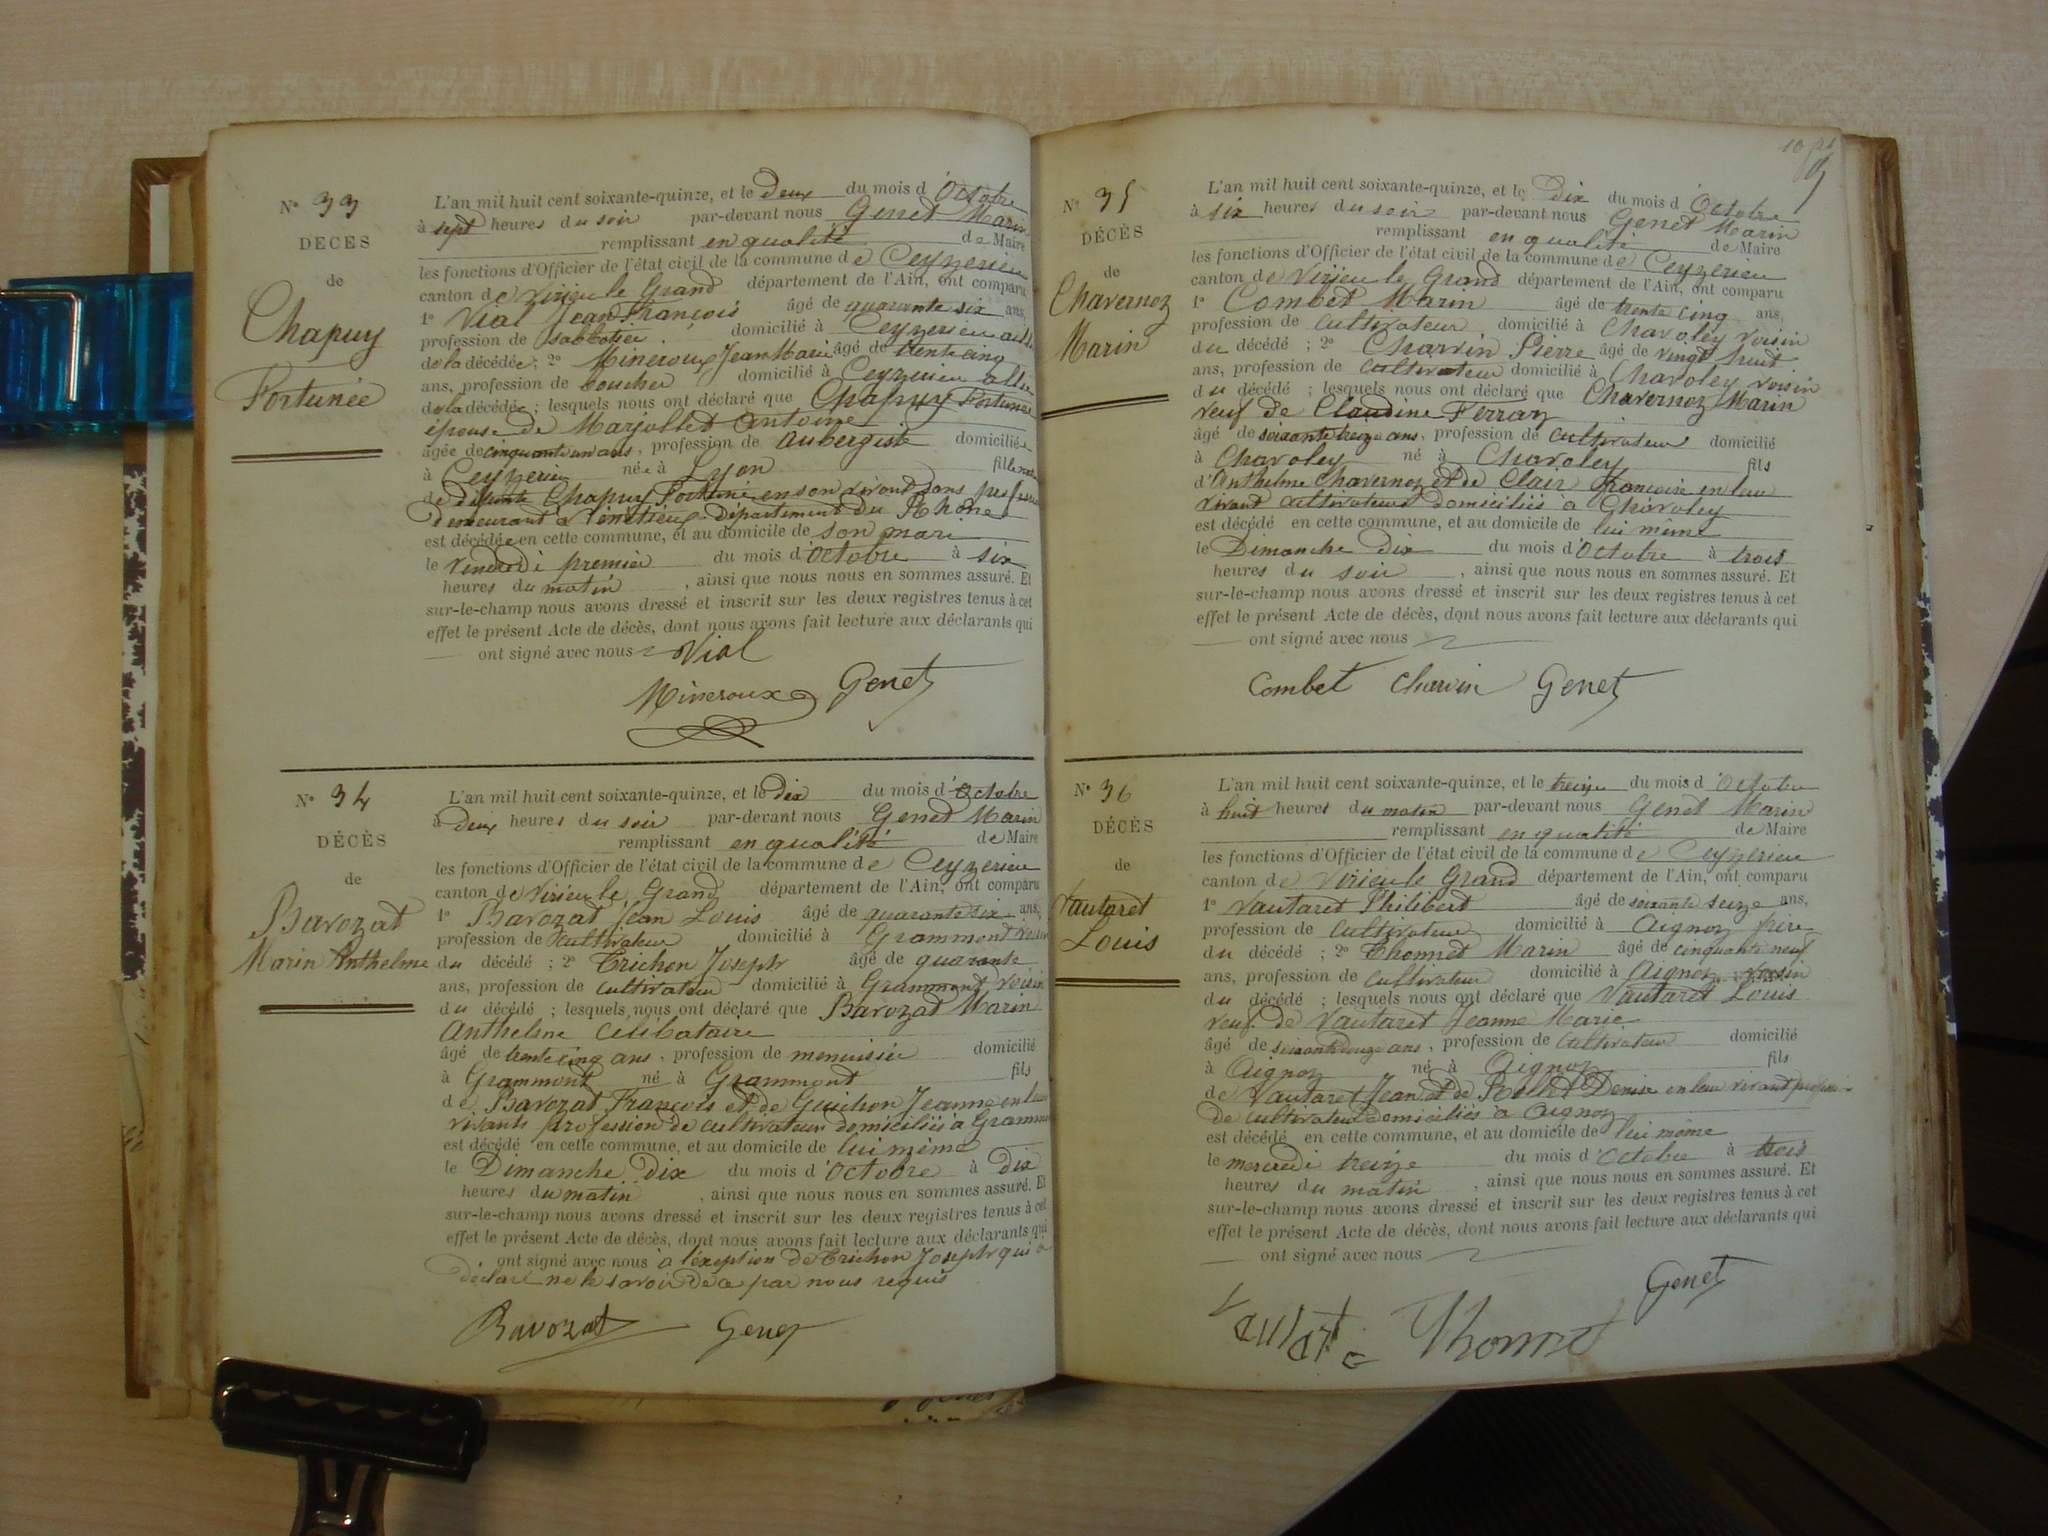 N° 33
DÉCÈS
de
Chapuy
Fortunée
L'an mil huit cent soixante-quinze, et le deux du mois d'Octobre
à sept heures du soir par-devant nous Genet Marin
remplissant en qualité de Maire
les fonctions d'Officier de l'état civil de la commune de Ceyzerieu
canton de Virieu le Grand département de l'Ain, ont comparu
1° Vial Jean François âgé de quarante six ans,
profession de sabbotier domicilié à Ceyzerieu
de la décédée ; 2° Mineroux Jean Marie âgé de trente cinq
ans, profession de boucher domicilié à Ceyzerieu
de la décédée ; lesquels nous ont déclaré que Chapuy Fortunée
épouse de Marjollet Antoine
âgée de cinquante un ans, profession de Aubergiste domiciliée
à Ceyzerieu née à Lyon fille
de Chapuy Fortuné en son vivant sans
demeurant à Vénétieux Département du Rhône
est décédée en cette commune, et au domicile de son mari
le vendredi premier du mois d'Octobre à six
heures du matin , ainsi que nous nous en sommes assuré. Et
sur-le-champ nous avons dressé et inscrit sur les deux registres tenus à cet
effet le présent Acte de décès, dont nous avons fait lecture aux déclarants qui
ont signé avec nous
Vial
Mineroux Genet
N° 34
DÉCÈS
de
Bavozat
Marin Anthelme
L'an mil huit cent soixante-quinze, et le dix du mois d'Octobre
à deux heures du soir par-devant nous Genet Marin
remplissant en qualité de Maire
les fonctions d'Officier de l'état civil de la commune de Ceyzerieu
canton de Virieu le Grand département de l'Ain, ont comparu
1° Bavozat Jean Louis âgé de quarante six ans,
profession de cultivateur domicilié à Grammont voisin
du décédé ; 2° Trichon Joseph âgé de quarante
ans, profession de cultivateur domicilié à Grammont voisin
du décédé ; lesquels nous ont déclaré que Bavozat Marin
Anthelme célibataire
âgé de trente cinq ans, profession de menuisier domicilié
à Grammont né à Grammont fils
de Bavozat François et de Guichon Jeanne en leur
vivants profession de cultivateurs domiciliés à Grammont
est décédé en cette commune, et au domicile de lui même
le Dimanche dix du mois d'Octobre à dix
heures du matin , ainsi que nous nous en sommes assuré. Et
sur-le-champ nous avons dressé et inscrit sur les deux registres tenus à cet
effet le présent Acte de décès, dont nous avons fait lecture aux déclarants qui
ont signé avec nous à l'exeption de Trichon Joseph qui a
déclaré ne le savoir de ce par nous requis
Bavozat Genet
N° 35
DÉCÈS
de
Chavernoz
Marin
L'an mil huit cent soixante-quinze, et le Dix du mois d'Octobre
à six heures du soir par-devant nous Genet Marin
remplissant en qualité de Maire
les fonctions d'Officier de l'état civil de la commune de Ceyzerieu
canton de Virieu le Grand département de l'Ain, ont comparu
1° Combet Marin âgé de trente cinq ans,
profession de cultivateur domicilié à Chavoley voisin
du décédé ; 2° Charvin Pierre âgé de vingt huit
ans, profession de cultivateur domicilié à Chavoley voisin
du décédé ; lesquels nous ont déclaré que Chavernoz Marin
veuf de Claudine Ferraz
âgé de soixante treize ans, profession de cultivateur domicilié
à Chavoley né à Chavoley fils
d'Anthelme Chavernoz et de Clair Françoise en leur
vivant cultivateurs domiciliés à Chavoley
est décédé en cette commune, et au domicile de lui même
le Dimanche dix du mois d'Octobre à trois
heures du soir , ainsi que nous nous en sommes assuré. Et
sur-le-champ nous avons dressé et inscrit sur les deux registres tenus à cet
effet le présent Acte de décès, dont nous avons fait lecture aux déclarants qui
ont signé avec nous
Combet Charvin Genet
N° 36
DÉCÈS
de
Vautaret
Louis
L'an mil huit cent soixante-quinze, et le treize du mois d'Octobre
à huit heures du matin par-devant nous Genet Marin
remplissant en qualité de Maire
les fonctions d'Officier de l'état civil de la commune de Ceyzerieu
canton de Virieu le Grand département de l'Ain, ont comparu
1° Vautaret Philibert âgé de soixante seize ans,
profession de cultivateur domicilié à Aignoz frère
du décédé ; 2° Thonnet Marin âgé de cinquante neuf
ans, profession de cultivateur domicilié à Aignoz voisin
du décédé ; lesquels nous ont déclaré que Vautaret Louis
veuf de Vautaret Jeanne Marie
âgé de soixante douze ans, profession de cultivateur domicilié
à Aignoz né à Aignoz fils
de Vautaret Jean et de Denise en leur vivant
de cultivateurs domiciliés à Aignoz
est décédé en cette commune, et au domicile de lui même
le mercredi treize du mois d'Octobre à trois
heures du matin , ainsi que nous nous en sommes assuré. Et
sur-le-champ nous avons dressé et inscrit sur les deux registres tenus à cet
effet le présent Acte de décès, dont nous avons fait lecture aux déclarants qui
ont signé avec nous
Genet
Thonnet